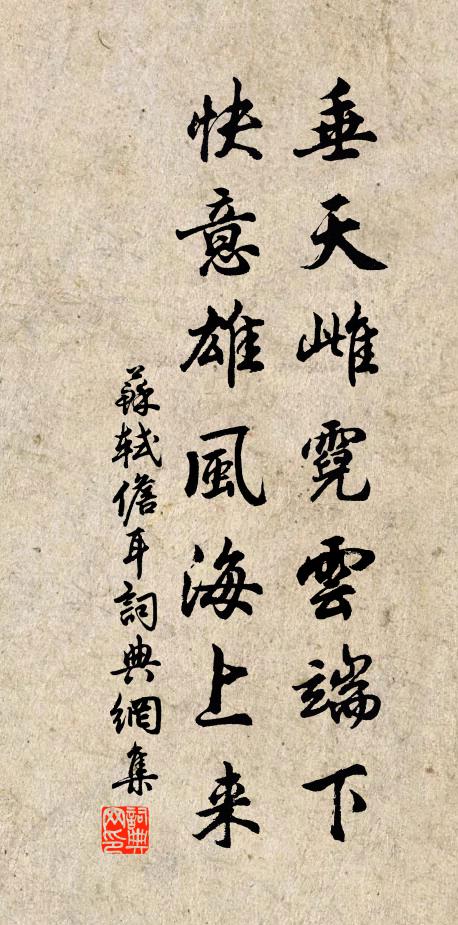 垂天雌霓雲端下
快意雄風海上来
蘇軾儋耳詞典網集
詞典網印